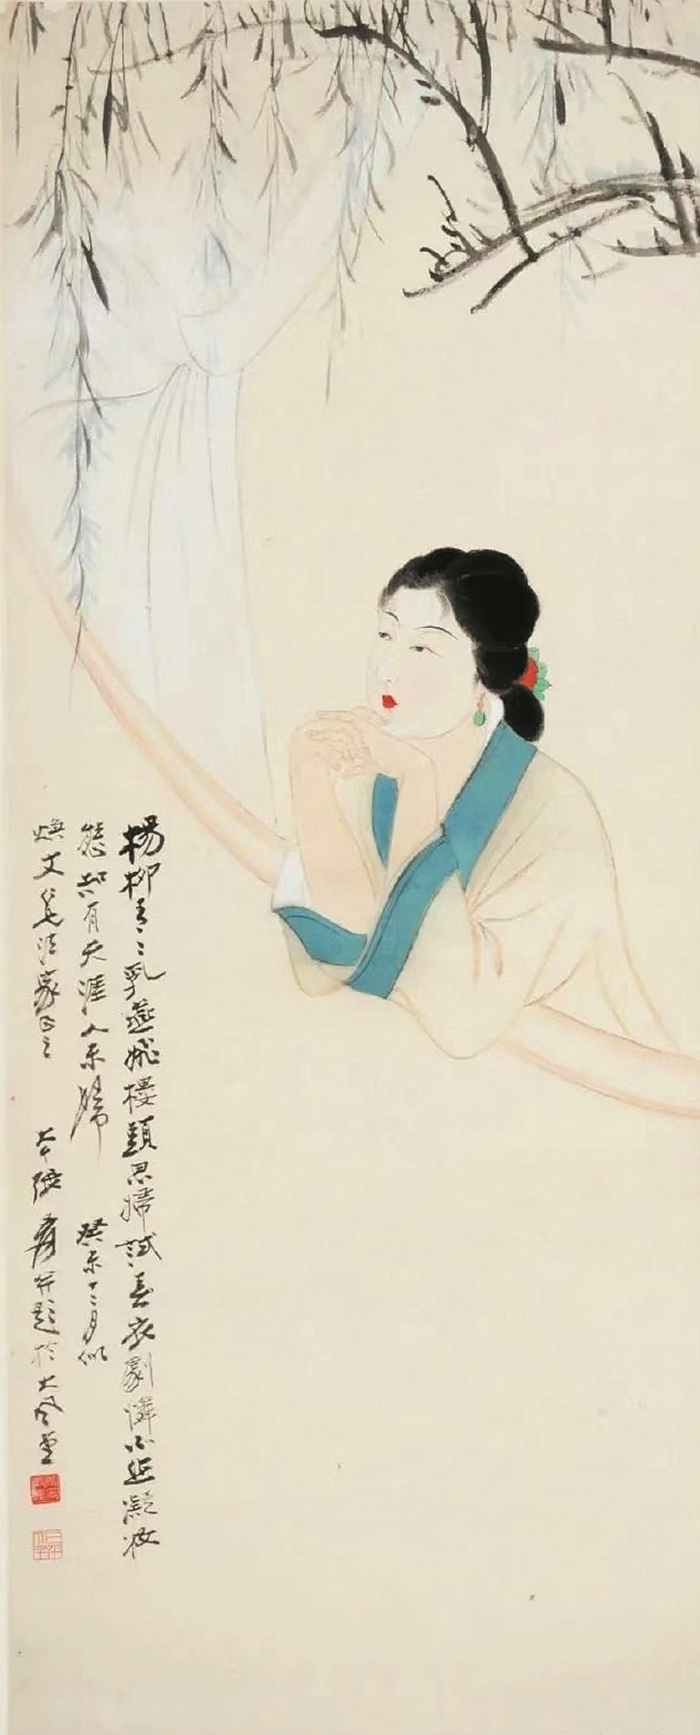 楊柳青々乳燕飛樓頭思婦試春衣劇憐小延凝妝
態卻有天涯人未歸 癸未十二月似
煥文先生法家正之 大千張爰並題於大風堂